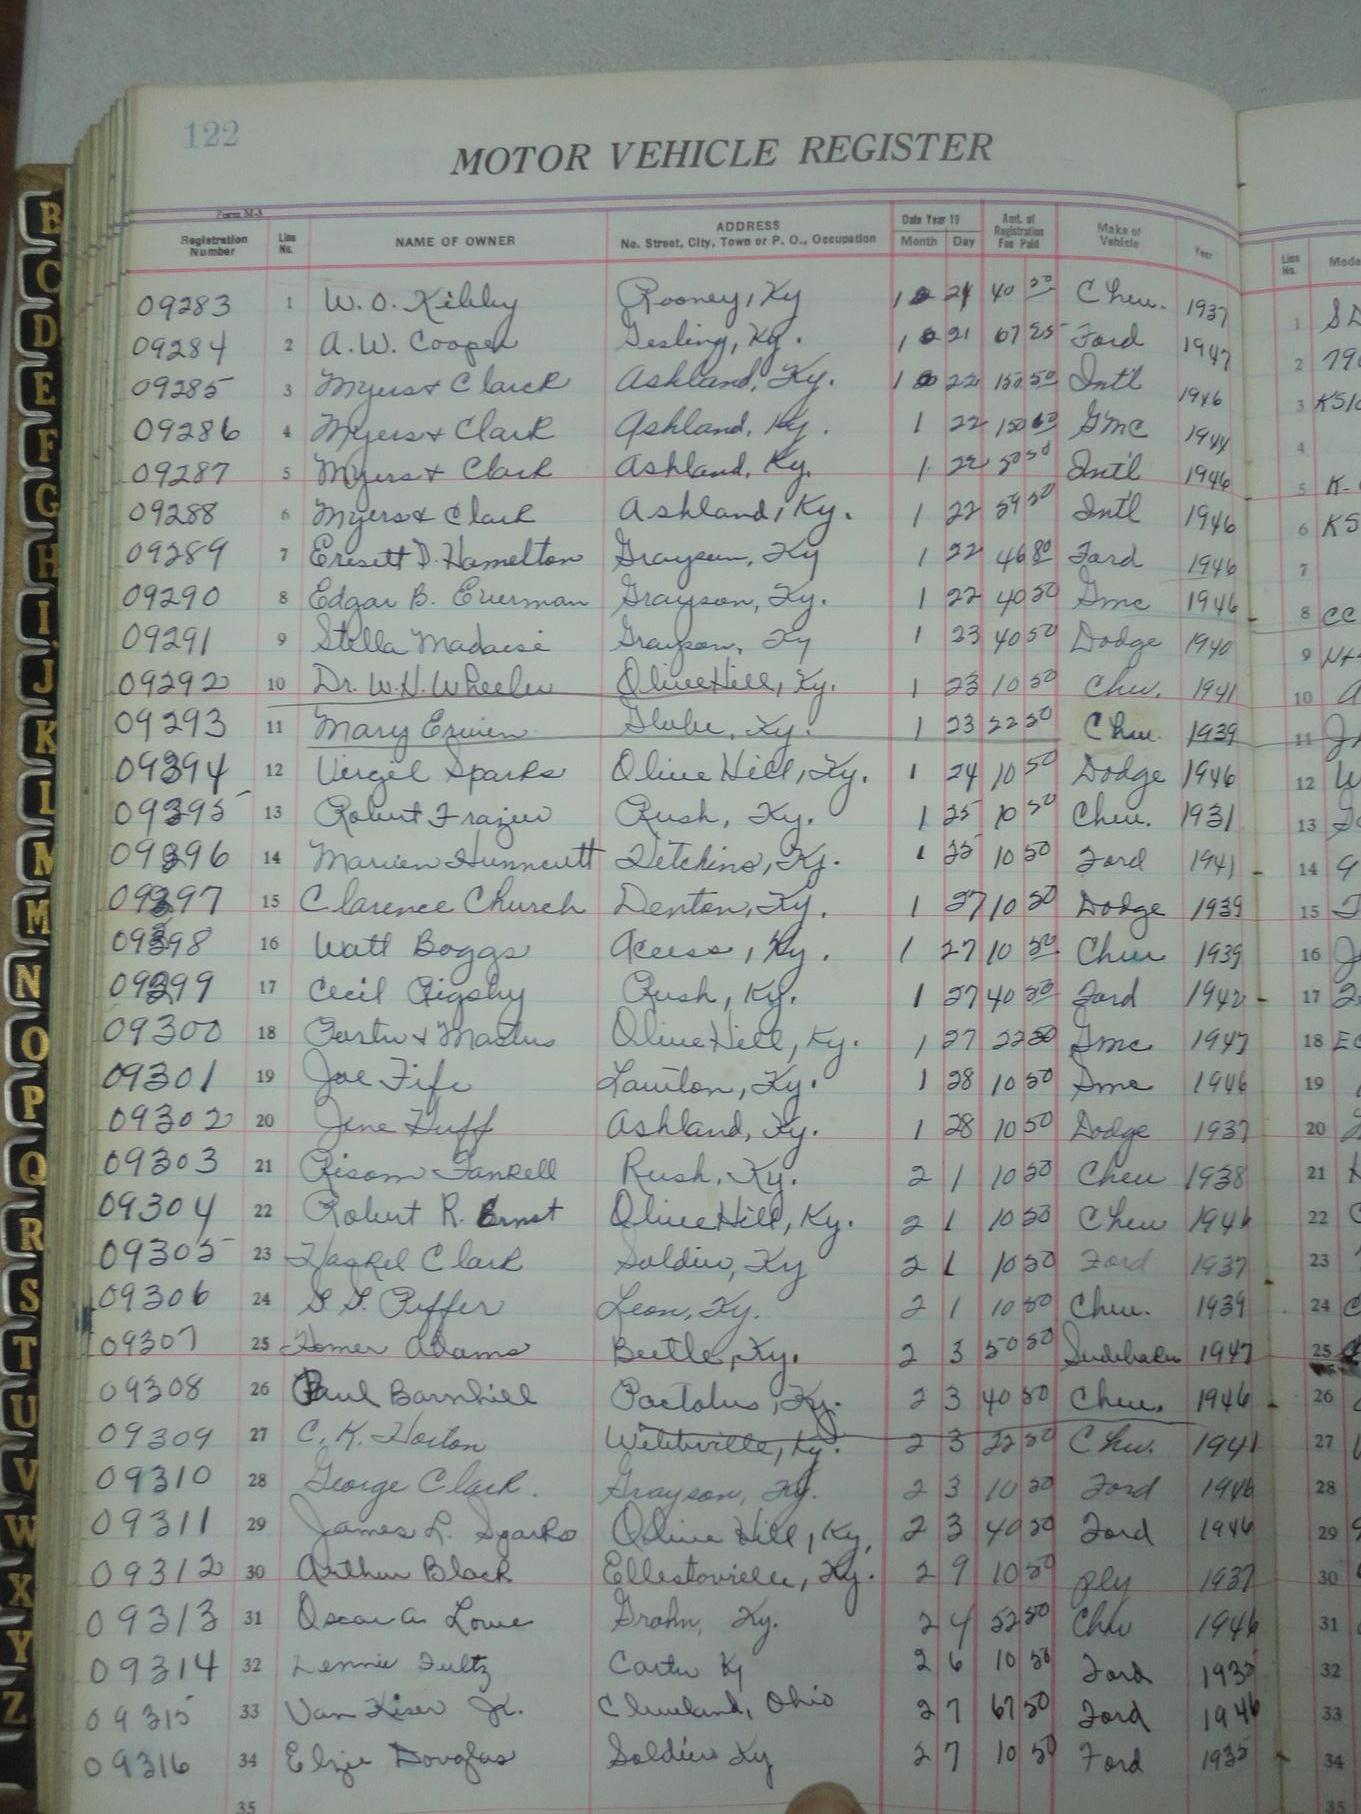 122
MOTOR VEHICLE REGISTER
Form M-3
Registration Number Line No. NAME OF OWNER ADDRESS No. Street, City, Town or P. O., Occupation Date Year 19 Month Day Amt. of Registration Fee Paid Make of Vehicle Year Line No.
09283 1 W. O. Kibby Rooney, Ky 1 21 40 50 Chev. 1937 1
09284 2 A. W. Cooper Gesling, Ky. 1 21 67 25 Ford 1947 2
09285 3 Myers & Clark Ashland, Ky. 1 22 150 50 Int'l 1946 3
09286 4 Myers & Clark Ashland, Ky. 1 22 150 GMC 1944 4
09287 5 Myers & Clark Ashland, Ky. 1 22 50 50 Int'l 1946 5
09288 6 Myers & Clark Ashland, Ky. 1 22 59 50 Intl 1946 6
09289 7 D. Hamelton Grayson, Ky 1 22 46 80 Ford 1946 7
09290 8 Edgar B. Everman Grayson, Ky. 1 22 40 50 Gmc 1946 8
09291 9 Stella Grayson, Ky 1 23 40 50 Dodge 1940 9
09292 10 Dr. W. H. Wheeler Olive Hill, Ky. 1 23 10 50 Chev. 1941 10
09293 11 Mary Erwin Globe, Ky. 1 23 22 50 Chev. 1939 11
09394 12 Virgil Sparks Olive Hill, Ky. 1 24 10 50 Dodge 1946 12
09395 13 Robert Frazier Rush, Ky. 1 25 10 50 Chev. 1931 13
09396 14 Hunnicutt Hitchins, Ky. 1 25 10 50 Ford 1941 14
09397 15 Clarence Church Denton, Ky. 1 27 10 50 Dodge 1939 15
09398 16 Watt Boggs Access, Ky. 1 27 10 50 Chev 1939 16
09299 17 Cecil Rigsby Rush, Ky. 1 27 40 50 Ford 1942 17
09300 18 Porter & Masters Olive Hill, Ky. 1 27 22 50 Gmc 1947 18
09301 19 Joe Fife Lawton, Ky. 1 28 10 50 Gmc 1946 19
09302 20 Jene Huff Ashland, Ky. 1 28 10 50 Dodge 1937 20
09303 21 Risom Fankell Rush, Ky. 2 1 10 50 Chev 1938 21
09304 22 Robert R. Ernst Olive Hill, Ky. 2 1 10 50 Chev 22
09305 23 Haskel Clark Soldier, Ky 2 1 10 50 Ford 1937 23
09306 24 Puffer Leon, Ky. 2 1 10 50 Chev. 1939 24
09307 25 Homer Adams Beetle, Ky. 2 3 50 50 Studebaker 1947 25
09308 26 Paul Barnhill Pactolus, Ky. 2 3 40 50 Chev. 1946 26
09309 27 C. K. Horton Webbville, Ky. 2 3 22 50 Chev. 1941 27
09310 28 George Clark. Grayson, Ky. 2 3 10 50 Ford 1946 28
09311 29 James L. Sparks Olive Hill, Ky. 2 3 40 50 Ford 1946 29
09312 30 Arthur Black Ky. 2 9 10 50 Ply 1937 30
09313 31 Oscar A. Lowe Grahn, Ky. 2 4 52 50 Chev 1946 31
09314 32 Lennie Fultz Carter Ky 2 6 10 50 Ford 1935 32
09315 33 Van Kiser Jr. Cleveland, Ohio 2 7 67 50 Ford 1946 33
09316 34 Elzie Douglas Soldier Ky 2 7 10 50 Ford 1935 34
35 35
B
C
D
E
F
G
H
I
J
K
L
M
M
N
O
P
Q
R
S
T
U
V
W
X
Y
Z